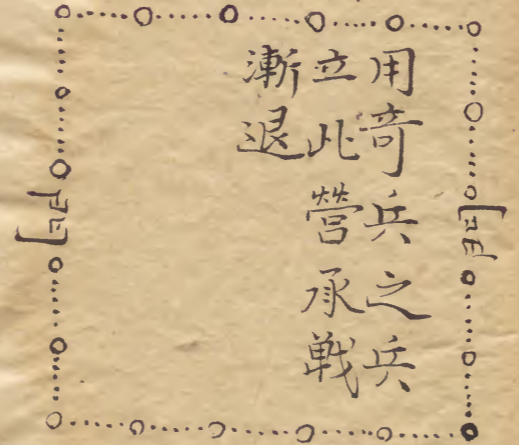 用竒兵之兵
立此營承戦
漸退
門
門